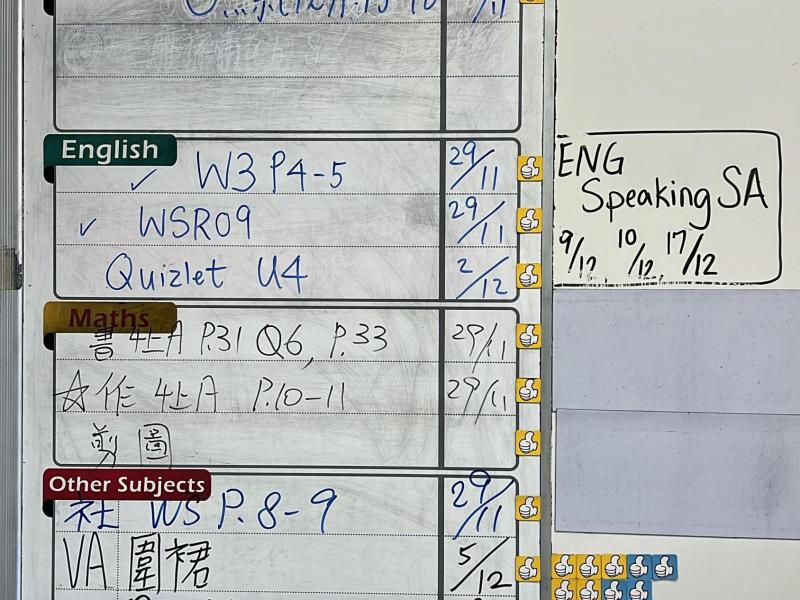 English
✓ W3 P4-5 29/11
✓ WSR09 29/11
Quizlet U4 2/12
Maths
書 4上A P.31 Q6, P.33 29/11
☆作 4上A P.10-11 29/11
剪圖
Other Subjects
社 WS P.8-9 29/11
VA 圍裙 5/12
ENG
Speaking SA
9/12 10/12, 17/12